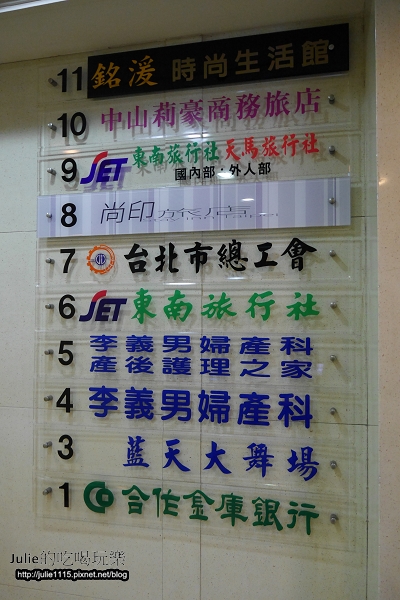 11 銘湲 時尚生活館
10 中山莉豪商務旅店
9 SET 東南旅行社 天馬旅行社
國內部·外人部
8 尚印旅店
7 台北市總工會
6 SET 東南旅行社
5 李義男婦產科
產後護理之家
4 李義男婦產科
3 藍天大舞場
1 合作金庫銀行
Julie的吃喝玩樂
http://julie1115.pixnet.net/blog